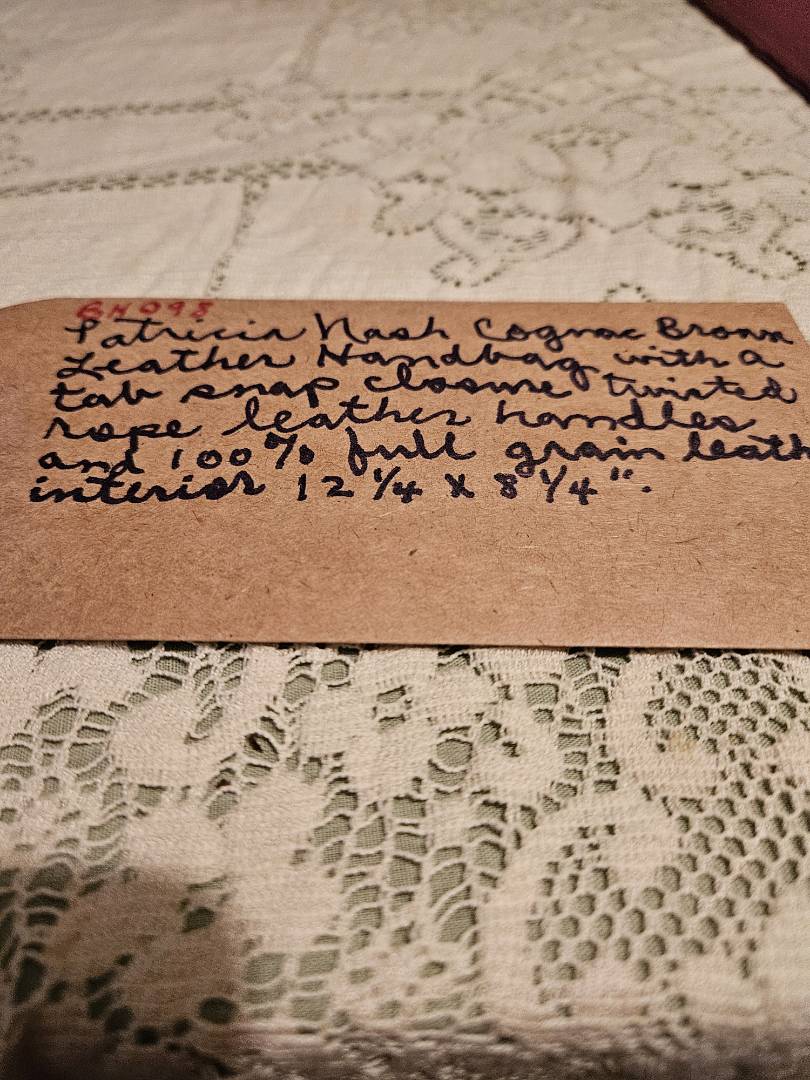 GH098
Patricia Nash Cognac Brown
Leather Handbag with a
tab snap closure twisted
rope leather handles
and 100% full grain leath
interior 12 1/4 x 8 1/4".